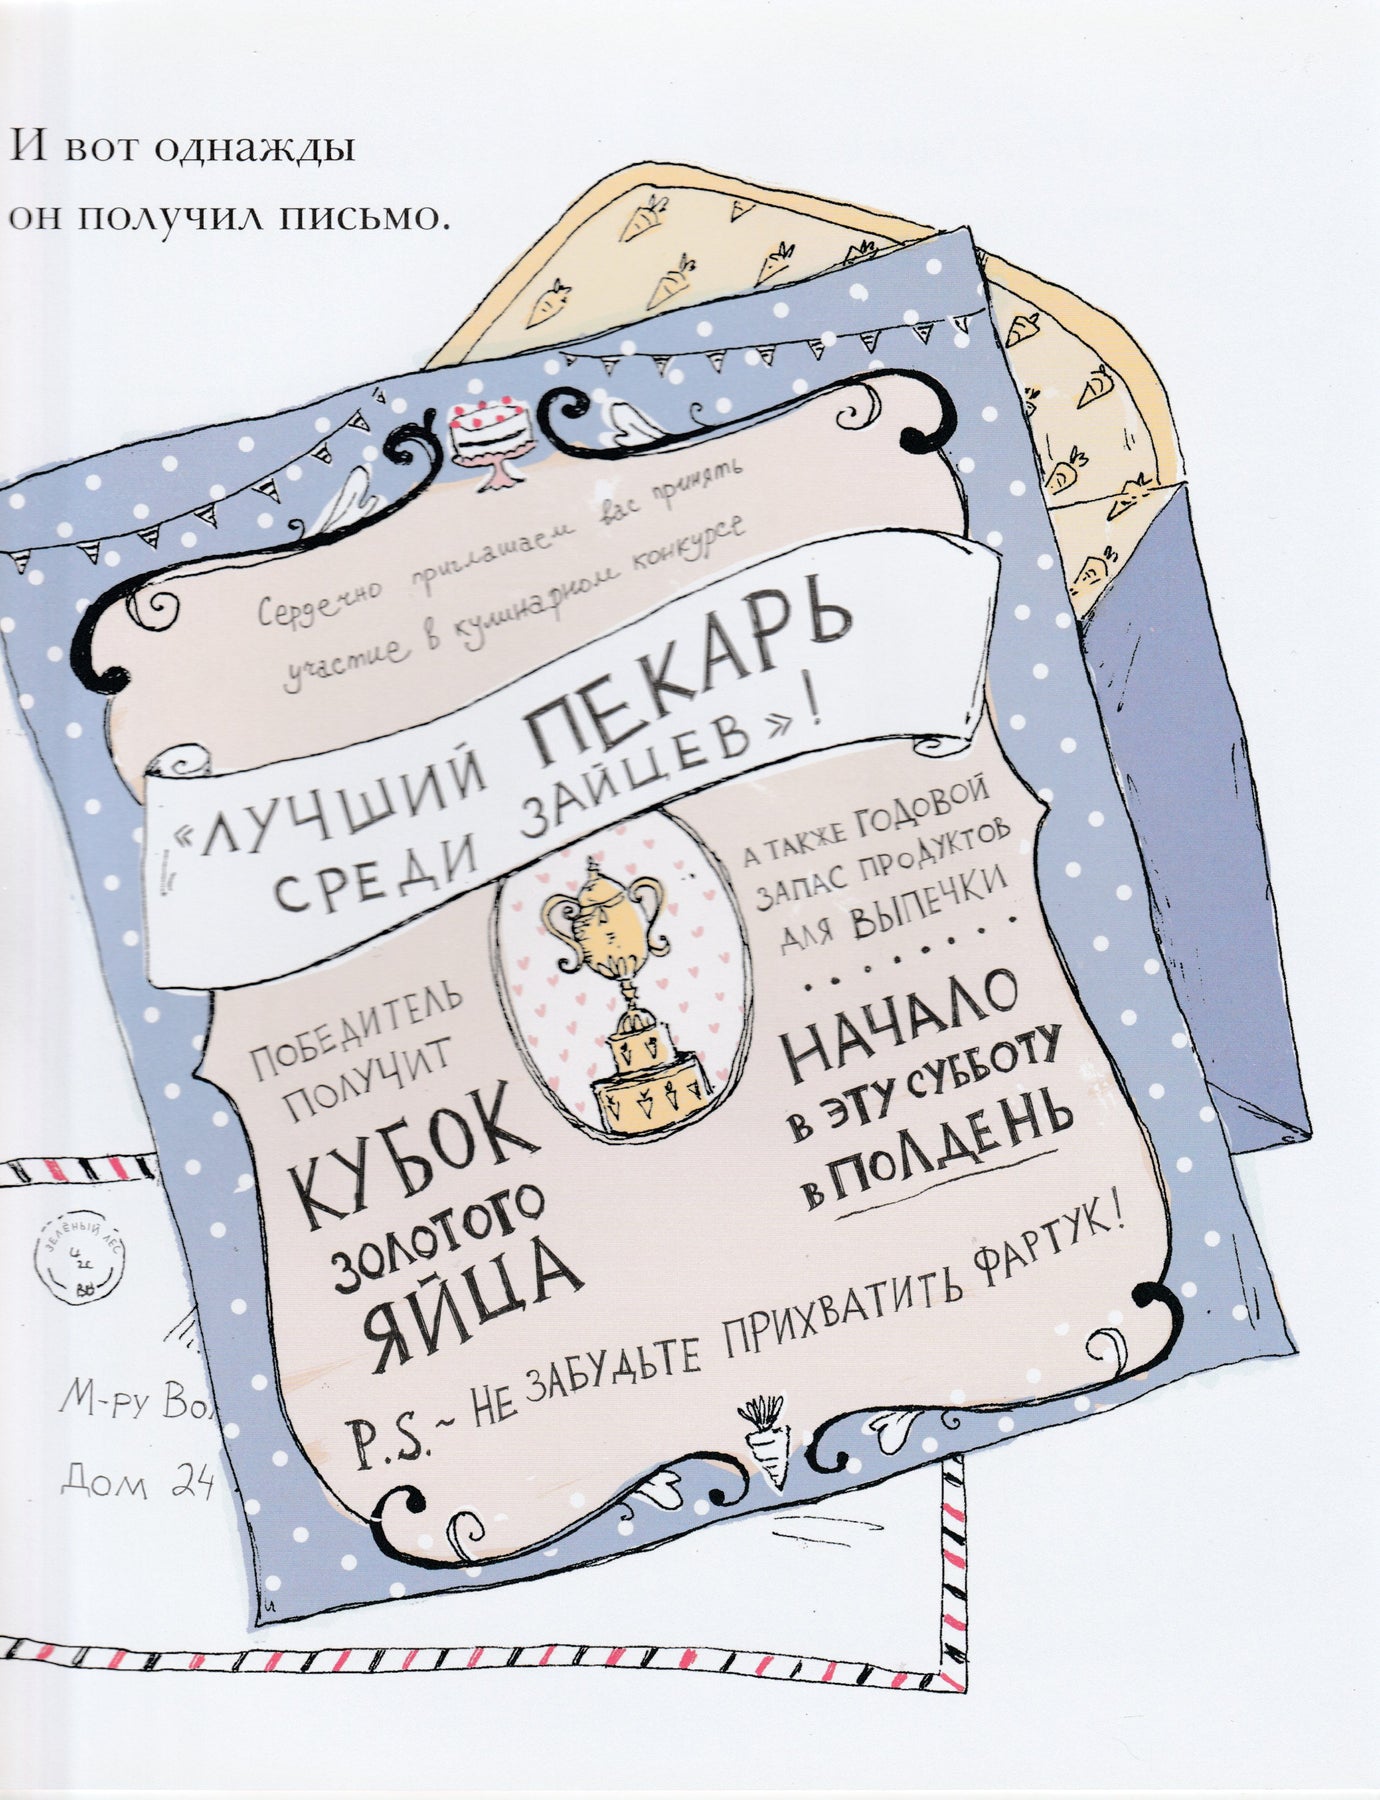 И вот однажды
он получил письмо.
Сердечно приглашаем вас принять
участие в кулинарном конкурсе
«ЛУЧШИЙ ПЕКАРЬ
СРЕДИ ЗАЙЦЕВ»!
ПОБЕДИТЕЛЬ
ПОЛУЧИТ
КУБОК
ЗОЛОТОГО
ЯЙЦА
А ТАКЖЕ ГОДОВОЙ
ЗАПАС ПРОДУКТОВ
ДЛЯ ВЫПЕЧКИ
НАЧАЛО
В ЭТУ СУББОТУ
В ПОЛДЕНЬ
P.S.~ НЕ ЗАБУДЬТЕ ПРИХВАТИТЬ ФАРТУК!
ЗЕЛЁНЫЙ ЛЕС
М-РУ
ДОМ 24